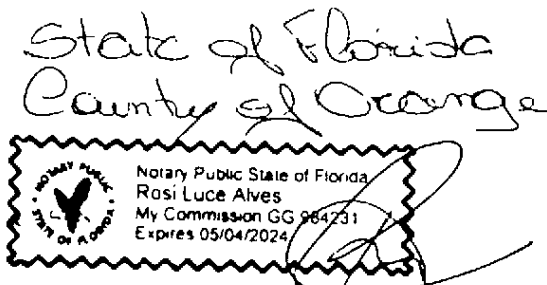 State of Florida
County of Orange
NOTARY PUBLIC
STATE OF FLORIDA
Notary Public State of Florida
Rosi Luce Alves
My Commission GG 984231
Expires 05/04/2024